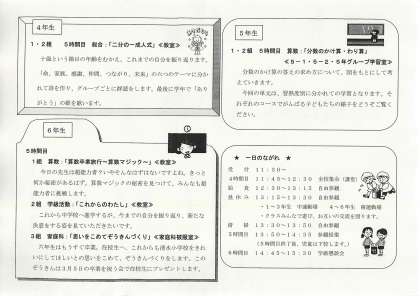 4年生
1・2組 5時間目 総合:「二分の一成人式」≪教室≫
十歳という節目の年齢をむかえ、これまでの自分を振り返ります。
「命、家族、感謝、仲間、つながり、未来」の六つのテーマに分か
れて詩を作り、グループごとに群読をします。最後に学年で「あり
がとう」の歌を歌います。
5年生
1・2組 5時間目 算数:「分数のかけ算・わり算」
≪5-1・5-2・5年グループ学習室≫
分数のかけ算の答えの求め方について、図をもとにして考
えていきます。
今回の単元は、習熟度別に分かれての学習となります。そ
れぞれのコースでがんばる子どもたちの様子をどうぞご覧く
ださい。
6年生
5時間目
1組 算数:「算数卒業旅行~算数マジック~」≪教室≫
今日の先生は超能力者?いやそんなはずはないですよね。きっと
何か秘密があるはず。算数マジックの秘密を見つけて、みんなも超
能力者に挑戦しよう。
2組 学級活動:「これからのわたし」≪教室≫
これから中学校へ進学するが、今までの自分を振り返り、新たな
決意をする姿を見ていただきたいです。
3組 家庭科:「思いをこめてぞうきんづくり」≪家庭科被服室≫
六年生はもうすぐ卒業。在校生へ、これからも清水小学校をきれ
いにしてほしいとの思いをこめて、ぞうきんづくりをします。この
ぞうきんは3月5日の卒業を祝う会で在校生にプレゼントします。
★ 一日のながれ ★
受付 11:30~
4時間目 11:45~12:30
給食 12:30~13:15 自由参観
昼休み 13:15~
13:30~13:50 自由参観
5時間目 13:50~14:35 授業参観
6時間目 14:50~ 学級懇談会